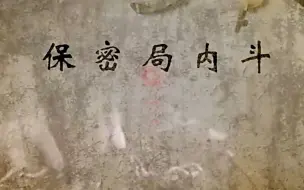 保密局内斗